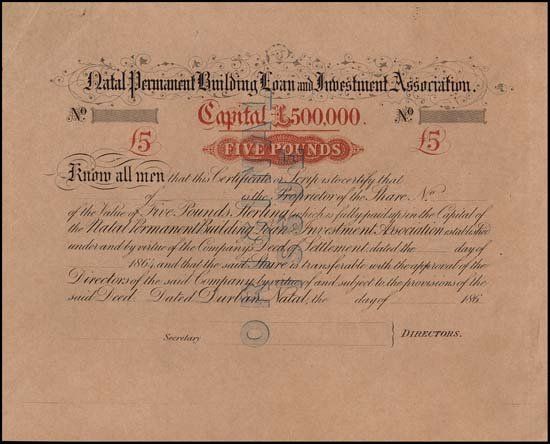 Natal Permanent Building Loan and Investment Association.
No Capital £500,000. No
£5 FIVE POUNDS £5
Know all men that this Certificate or Scrip is to certify that
of is the Proprietor of the Share No
of the Value of Five Pounds Sterling which is fully paid up in the Capital of
the Natal Permanent Building Loan & Investment Association established
under and by virtue of the Company's Deed of Settlement, dated the day of
1864, and that the said Share is transferable with the approval of the
Directors of the said Company by virtue of and subject to the provisions of the
said Deed. Dated Durban Natal, the day of 186
Secretary DIRECTORS.